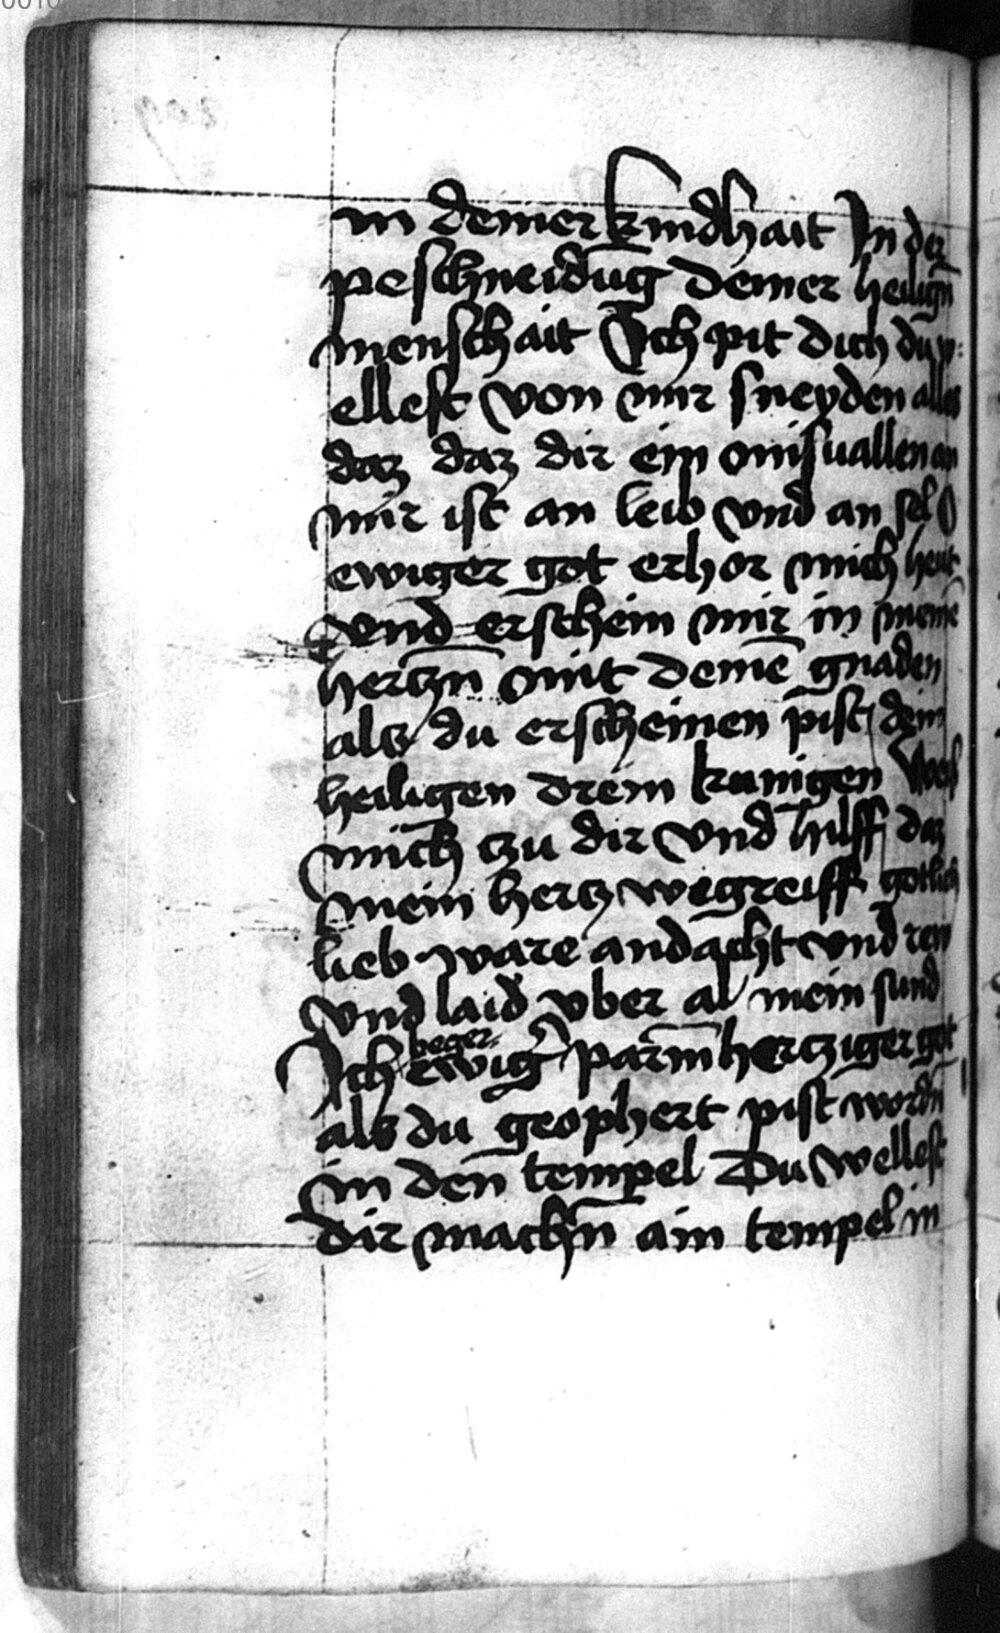 in deiner kindhait In der
peschneidūg deiner heilign̄
menschait Ich pit dich du w:
ellest von mir sneyden alles
daz daz dir ein misuallen an
mir ist an leib vnd an sel O
ewiger got erhor mich heut
vnd erschein mir in meinē
hertzn̄ mit deinē gnaden
alz du erscheinen pist dein
heiligen drein kunigen Weis
mich tzu dir vnd hilff daz
mein hertz wegreiff gotlich
lieb ware andacht vnd rew
vnd laid vber al mein sund
Ich beger ewig̃ parm̄hertziger got
als du geophert pist wordn̄
in den̄ tempel Du wellest
dir machn̄ ain tempel in